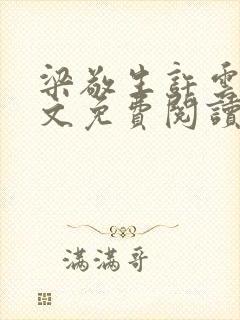 梁敬生許雲
文免費閱讀
滿滿哥